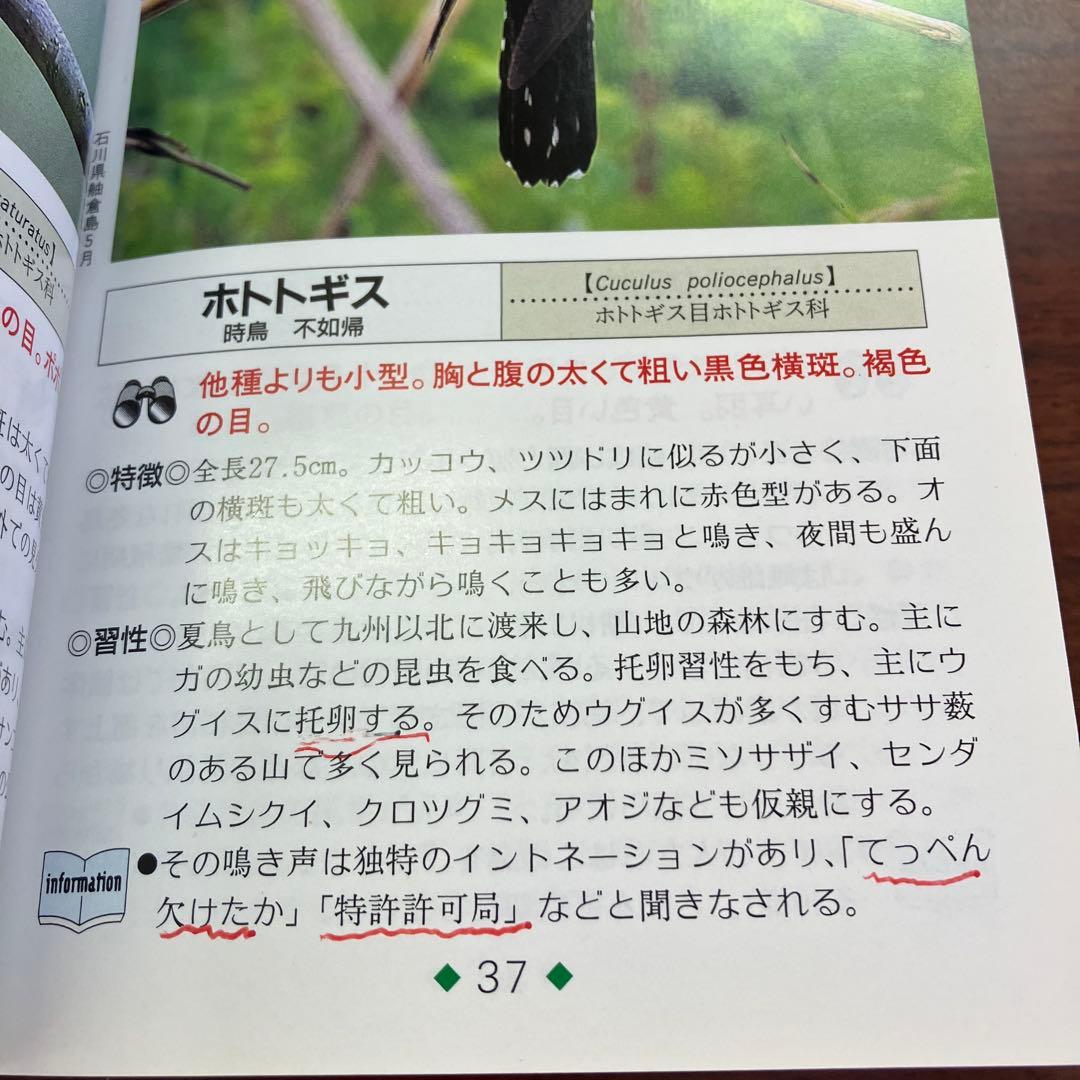 石川県舳倉島5月
aturatus】
ホトトギス科
の目。ポポ
ホトトギス
時鳥 不如帰
【Cuculus poliocephalus】
ホトトギス目ホトトギス科
他種よりも小型。胸と腹の太くて粗い黒色横斑。褐色
の目。
◎特徴◎全長27.5cm。カッコウ、ツツドリに似るが小さく、下面
の横斑も太くて粗い。メスにはまれに赤色型がある。オ
スはキョッキョ、キョキョキョキョと鳴き、夜間も盛ん
に鳴き、飛びながら鳴くことも多い。
◎習性◎夏鳥として九州以北に渡来し、山地の森林にすむ。主に
ガの幼虫などの昆虫を食べる。托卵習性をもち、主にウ
グイスに托卵する。そのためウグイスが多くすむササ薮
のある山で多く見られる。このほかミソサザイ、センダ
イムシクイ、クロツグミ、アオジなども仮親にする。
information
●その鳴き声は独特のイントネーションがあり、「てっぺん
欠けたか」「特許許可局」などと聞きなされる。
37